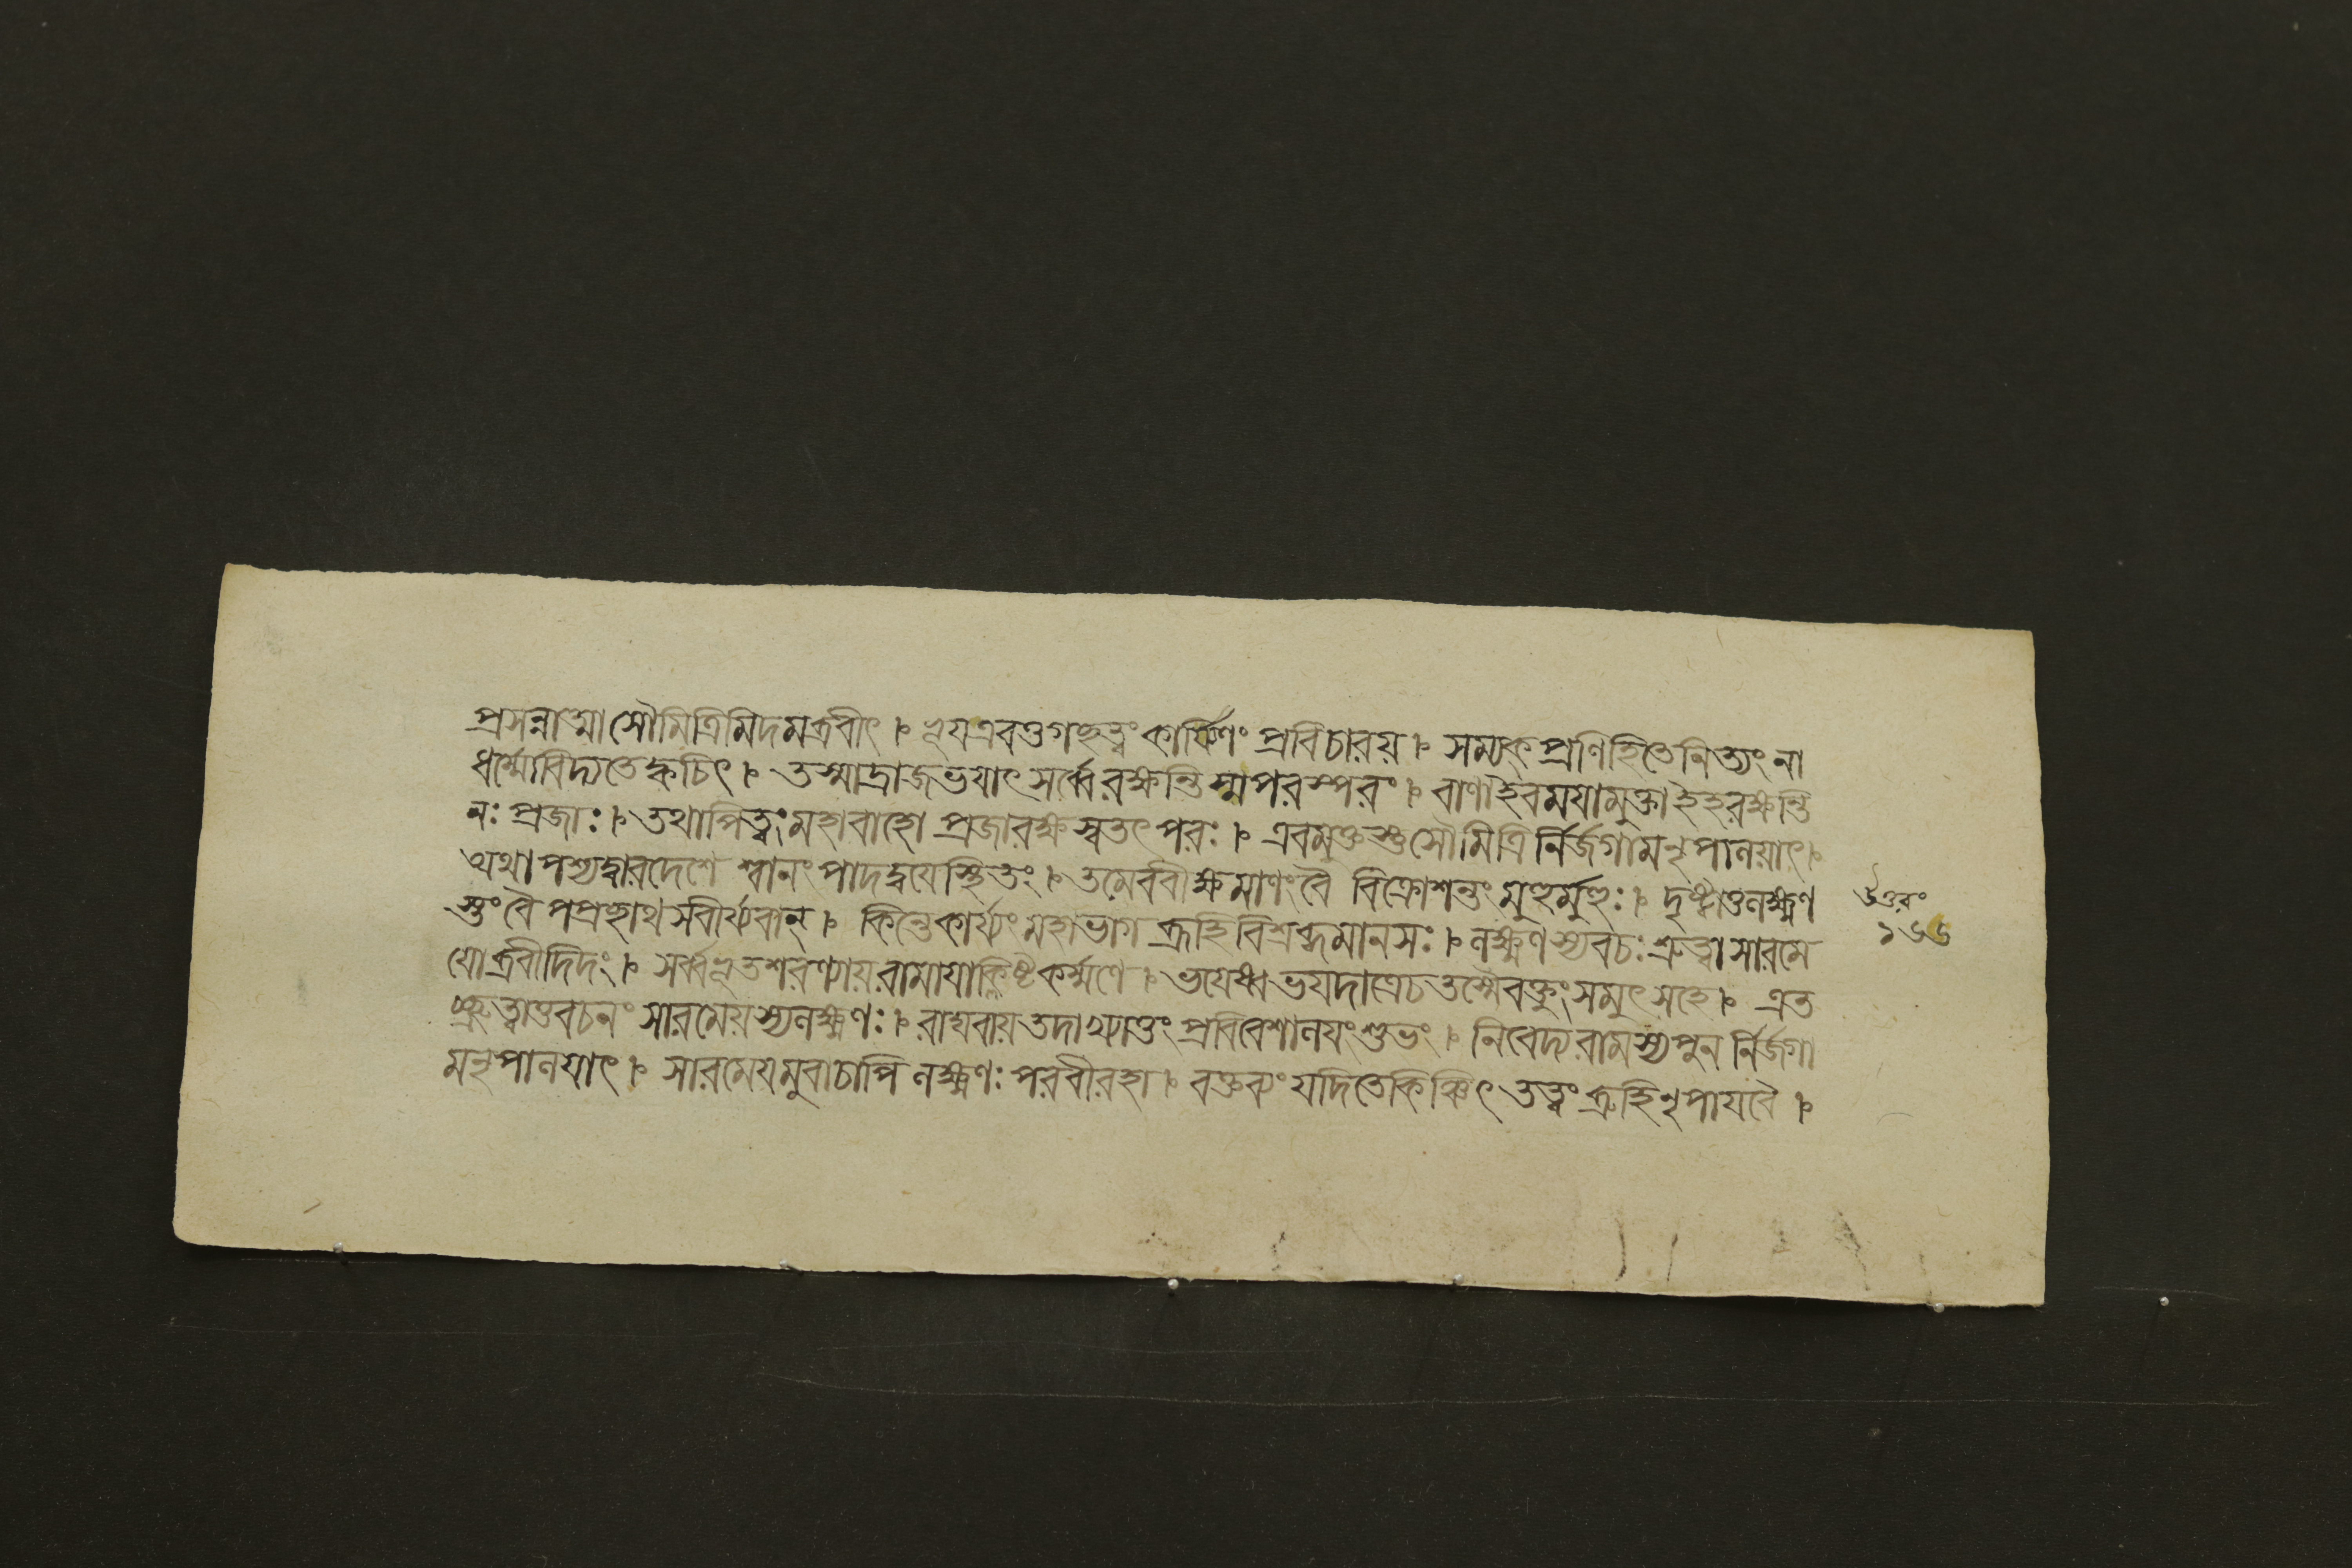 প্রসন্নাত্মা সৌমিত্রিমিদমব্রবীৎ ৷ ভূয এবতু গচ্ছত্বং কার্য্যিণং প্রবিচারয় ৷ সম্যক্ প্রণিহিতে নিত্যং না
ধর্ম্মো বিদ্যতে ক্বচিৎ ৷ তস্মাদ্রাজভযাৎ সর্ব্বে রক্ষন্তিস্ম পরস্পরং ৷ বাণা ইবমযামুক্তা ইহ রক্ষন্তি
নঃ প্রজাঃ ৷ তথাপিত্বং মহাবাহো প্রজা রক্ষস্ব তৎপরঃ ৷ এবমুক্তস্তু সৌমিত্রি র্নির্জগাম নৃপালয়াৎ ৷
অথাপশ্যদ্দ্বারদেশে শ্বানং পাদদ্বযে স্থিতং ৷ তমেবং বীক্ষমাণং বৈ বিক্রোশন্তং মুহুর্মুহুঃ ৷ দৃষ্ট্বাতু লক্ষ্মণ
স্তং বৈ পপ্রচ্ছাথ স বীর্য্যবান্ ৷ কিন্তে কার্য্যং মহাভাগ ব্রূহি বিশ্রব্ধমানসঃ ৷ লক্ষ্মণস্য বচঃ শ্রুত্বা সারমে
যোব্রবীদিদং ৷ সর্ব্বভূতশরণ্যায় রামাযাক্লিষ্টকর্ম্মণে ৷ ভযেষ্বভযদাত্রেচ তস্মৈ বক্তুং সমুৎসহে ৷ এত
চ্ছ্রুত্বাতু বচনং সারমেয়স্য লক্ষ্মণঃ ৷ রাঘবায় তদাখ্যাতুং প্রবিবেশালযং শুভং ৷ নিবেদ্য রামস্য পুন র্নির্জগা
ম নৃপালযাৎ ৷ সারমেযমুবাচাপি লক্ষ্মণঃ পরবীরহা ৷ বক্তব্যং যদিতে কিঞ্চিৎ তত্ত্বং ব্রূহি নৃপাযবৈ ৷
উত্তরং
১৬৬